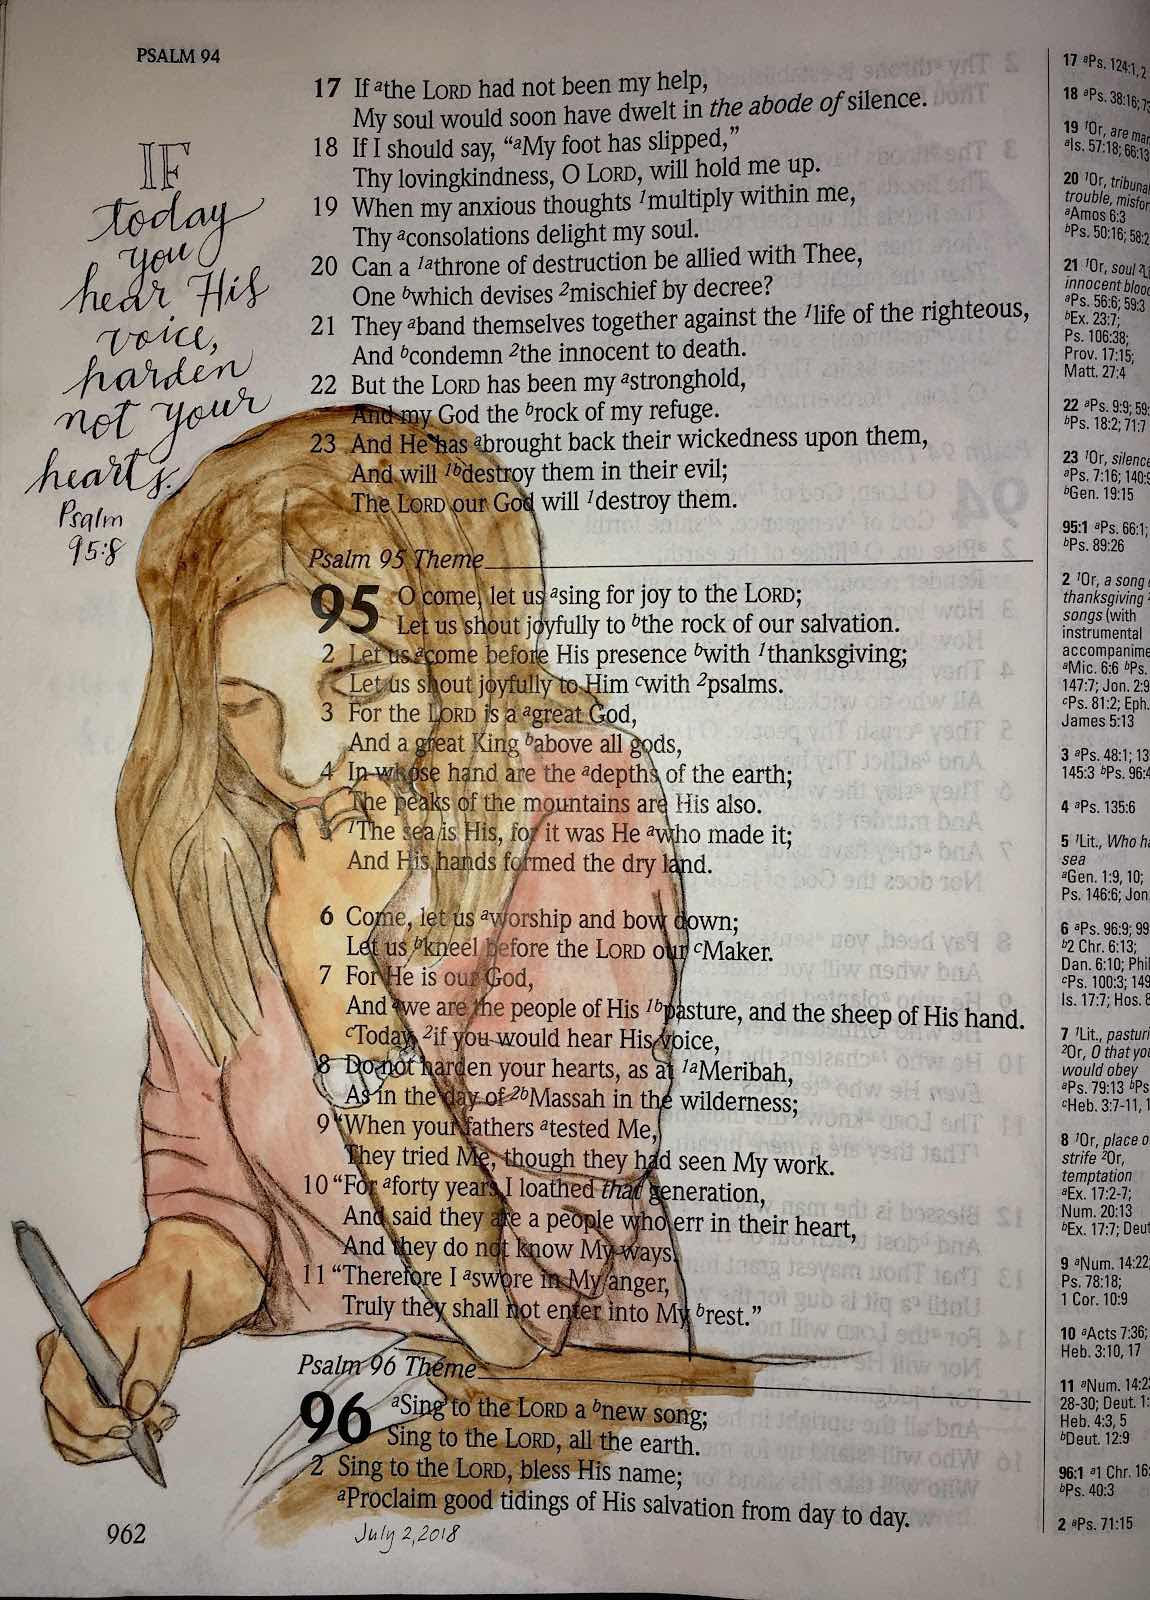 PSALM 94
IF
today
you
hear His
voice,
harden
not your
hearts.
Psalm
95:8
17 If ᵃthe LORD had not been my help,
My soul would soon have dwelt in the abode of silence.
18 If I should say, “ᵃMy foot has slipped,”
Thy lovingkindness, O LORD, will hold me up.
19 When my anxious thoughts ¹multiply within me,
Thy ᵃconsolations delight my soul.
20 Can a ¹ᵃthrone of destruction be allied with Thee,
One ᵇwhich devises ²mischief by decree?
21 They ᵃband themselves together against the ¹life of the righteous,
And ᵇcondemn ²the innocent to death.
22 But the LORD has been my ᵃstronghold,
And my God the ᵇrock of my refuge.
23 And He has ᵃbrought back their wickedness upon them,
And will ¹ᵇdestroy them in their evil;
The LORD our God will ¹destroy them.
Psalm 95 Theme
95 O come, let us ᵃsing for joy to the LORD;
Let us shout joyfully to ᵇthe rock of our salvation.
2 Let us ᵃcome before His presence ᵇwith ¹thanksgiving;
Let us shout joyfully to Him ᶜwith ²psalms.
3 For the LORD is a ᵃgreat God,
And a great King ᵇabove all gods,
4 In whose hand are the ᵃdepths of the earth;
The peaks of the mountains are His also.
5 ¹The sea is His, for it was He ᵃwho made it;
And His hands formed the dry land.
6 Come, let us ᵃworship and bow down;
Let us ᵇkneel before the LORD our ᶜMaker.
7 For He is our God,
And ᵃwe are the people of His ¹ᵇpasture, and the sheep of His hand.
ᶜToday, ²if you would hear His voice,
8 Do not harden your hearts, as at ¹ᵃMeribah,
As in the day of ²ᵇMassah in the wilderness;
9 “When your fathers ᵃtested Me,
They tried Me, though they had seen My work.
10 “For ᵃforty years I loathed that generation,
And said they are a people who err in their heart,
And they do not know My ways.
11 “Therefore I ᵃswore in My anger,
Truly they shall not enter into My ᵇrest.”
Psalm 96 Theme
96 ᵃSing to the LORD a ᵇnew song;
Sing to the LORD, all the earth.
2 Sing to the LORD, bless His name;
ᵃProclaim good tidings of His salvation from day to day.
962
July 2, 2018
17 ᵃPs. 124:1, 2
18 ᵃPs. 38:16;
19 ¹Or, are
ᵃIs. 57:18; 66:13
20 ¹Or,
trouble,
ᵃAmos 6:3
ᵇPs. 50:16; 58:2
21 ¹Or, soul
innocent blood
ᵃPs. 56:6; 59:3
ᵇEx. 23:7;
Ps. 106:38;
Prov. 17:15;
Matt. 27:4
22 ᵃPs. 9:9;
ᵇPs. 18:2; 71:7
23 ¹Or, silence
ᵃPs. 7:16;
ᵇGen. 19:15
95:1 ᵃPs. 66:1;
ᵇPs. 89:26
2 ¹Or, a song
thanksgiving
songs (with
instrumental
ᵃMic. 6:6 ᵇPs.
147:7; Jon. 2:9
ᶜPs. 81:2; Eph.
James 5:13
3 ᵃPs. 48:1;
145:3 ᵇPs.
4 ᵃPs. 135:6
5 ¹Lit., Who
sea
ᵃGen. 1:9, 10;
Ps. 146:6; Jon.
6 ᵃPs. 96:9;
ᵇ2 Chr. 6:13;
Dan. 6:10;
ᶜPs. 100:3;
Is. 17:7; Hos.
7 ¹Lit.,
²Or, O that you
would obey
ᵃPs. 79:13
ᶜHeb. 3:7-11,
8 ¹Or, place
strife ²Or,
temptation
ᵃEx. 17:2-7;
Num. 20:13
ᵇEx. 17:7;
9 ᵃNum. 14:22;
Ps. 78:18;
1 Cor. 10:9
10 ᵃActs 7:36;
Heb. 3:10, 17
11 ᵃNum.
28-30; Deut.
Heb. 4:3, 5
ᵇDeut. 12:9
96:1 ᵃ1 Chr.
ᵇPs. 40:3
2 ᵃPs. 71:15